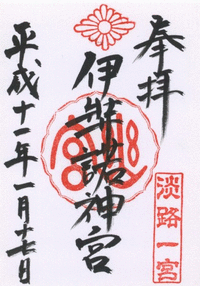 奉拝
淡路一宮
伊弉諾神宮
平成十一年一月十七日